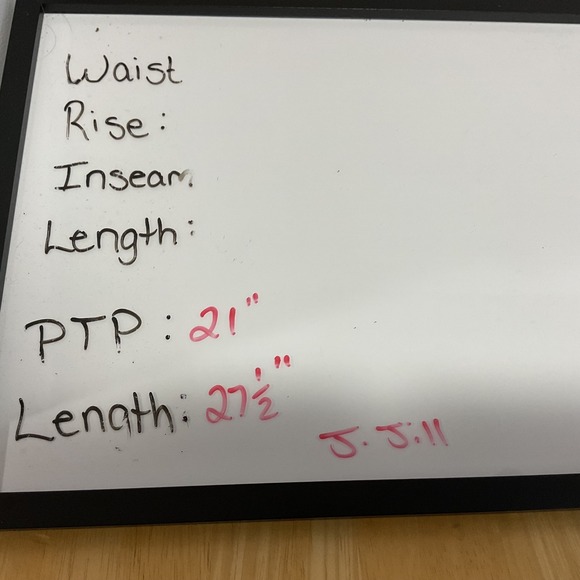 Waist
Rise:
Inseam
Length:
PTP: 21"
Length: 27 1/2"
J. Jill